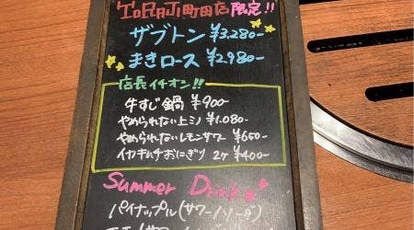 TORAJI町田店 限定!!
ザブトン ¥3,280-
まきロース ¥2,980-
店長イチオシ!!
牛すじ鍋 ¥900-
やめられない上ミノ ¥1,080-
やめられないレモンサワー ¥650-
イカキムチおにぎり 2ケ ¥400-
Summer Drink
パイナップル(サワー/ソーダ)